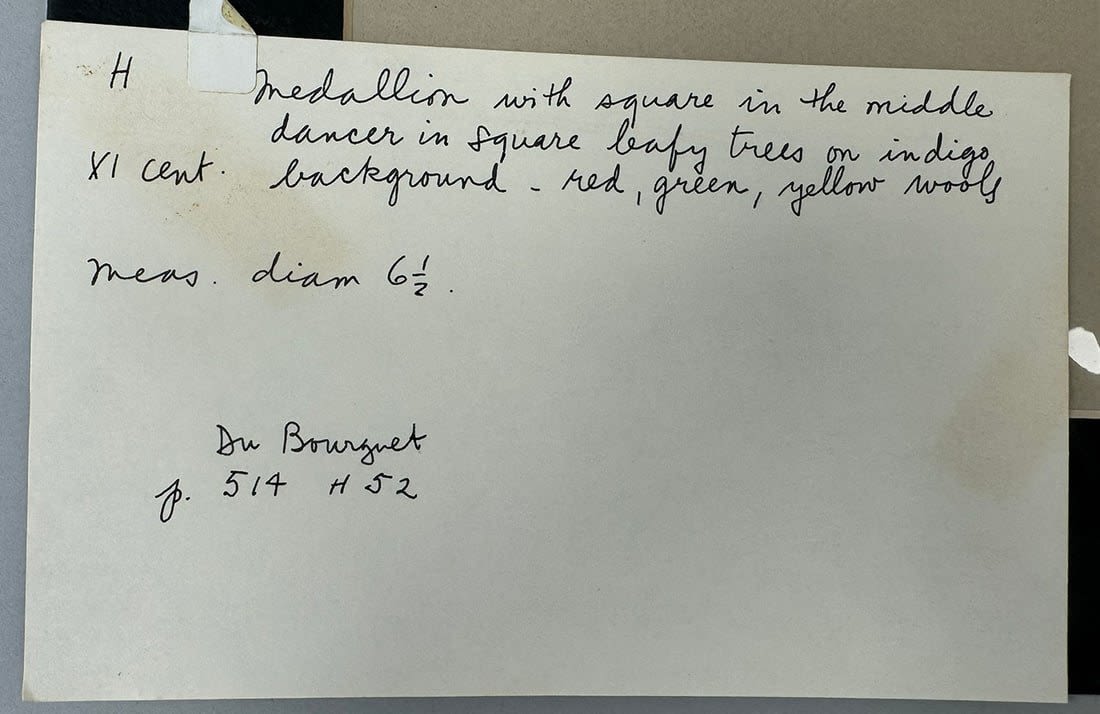 H medallion with square in the middle
dancer in square leafy trees on indigo
XI cent. background - red, green, yellow wools
meas. diam 6½.
Du Bourguet
p. 514 H 52